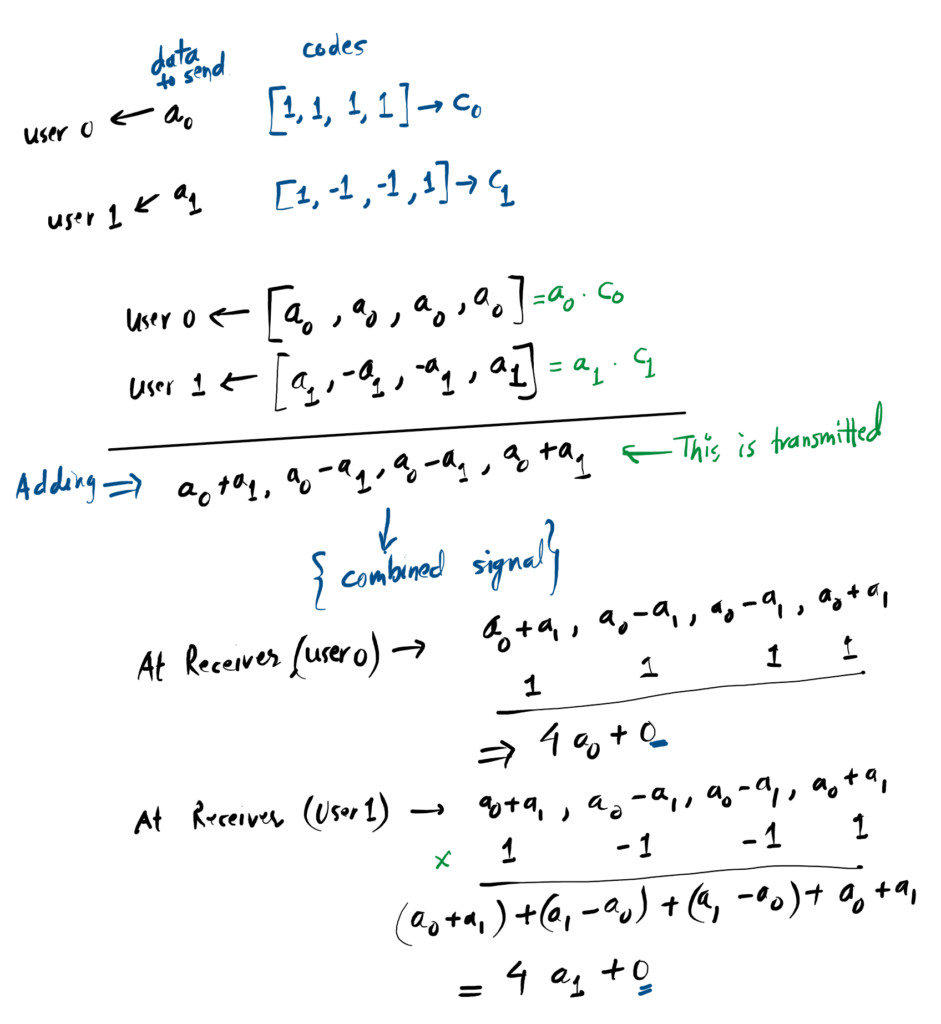 data to send codes
user 0 ← a₀ [1, 1, 1, 1] → c₀
user 1 ← a₁ [1, -1, -1, 1] → c₁
User 0 ← [a₀, a₀, a₀, a₀] = a₀ · c₀
User 1 ← [a₁, -a₁, -a₁, a₁] = a₁ · c₁
Adding ⇒ a₀+a₁, a₀-a₁, a₀-a₁, a₀+a₁ ← This is transmitted
↓
{combined signal}
At Receiver (user 0) → a₀+a₁, a₀-a₁, a₀-a₁, a₀+a₁
1 1 1 1
⇒ 4a₀ + 0
At Receiver (User 1) → a₀+a₁, a₀-a₁, a₀-a₁, a₀+a₁
× 1 -1 -1 1
(a₀+a₁)+(a₁-a₀)+(a₁-a₀)+a₀+a₁
= 4 a₁ + 0